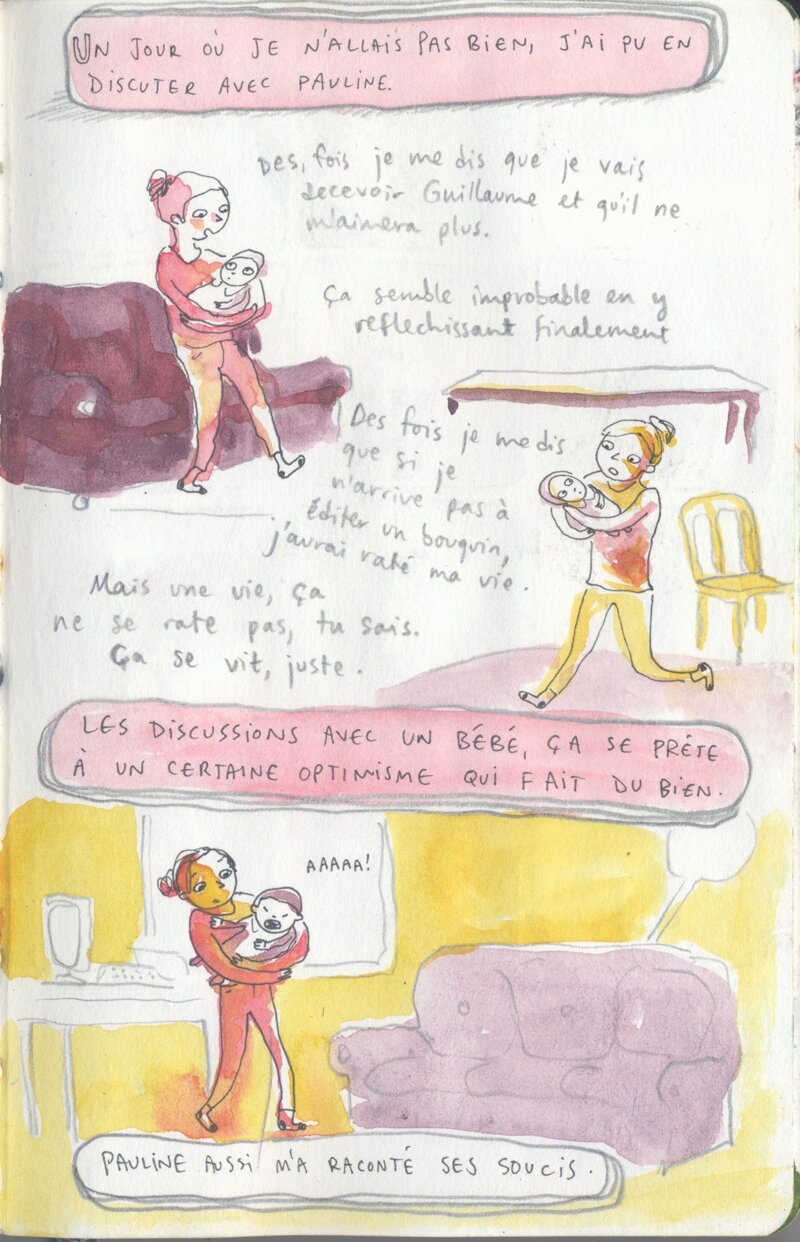 UN JOUR OÙ JE N'ALLAIS PAS BIEN, J'AI PU EN
DISCUTER AVEC PAULINE.
Des fois je me dis que je vais
decevoir Guillaume et qu'il ne
m'aimera plus.
Ça semble improbable en y
reflechissant finalement
Des fois je me dis
que si je
n'arrive pas à
éditer un bouquin,
j'aurai raté ma vie.
Mais une vie, ça
ne se rate pas, tu sais.
Ça se vit, juste.
LES DISCUSSIONS AVEC UN BÉBÉ, ÇA SE PRÊTE
À UN CERTAINE OPTIMISME QUI FAIT DU BIEN.
AAAAA!
PAULINE AUSSI M'A RACONTÉ SES SOUCIS.